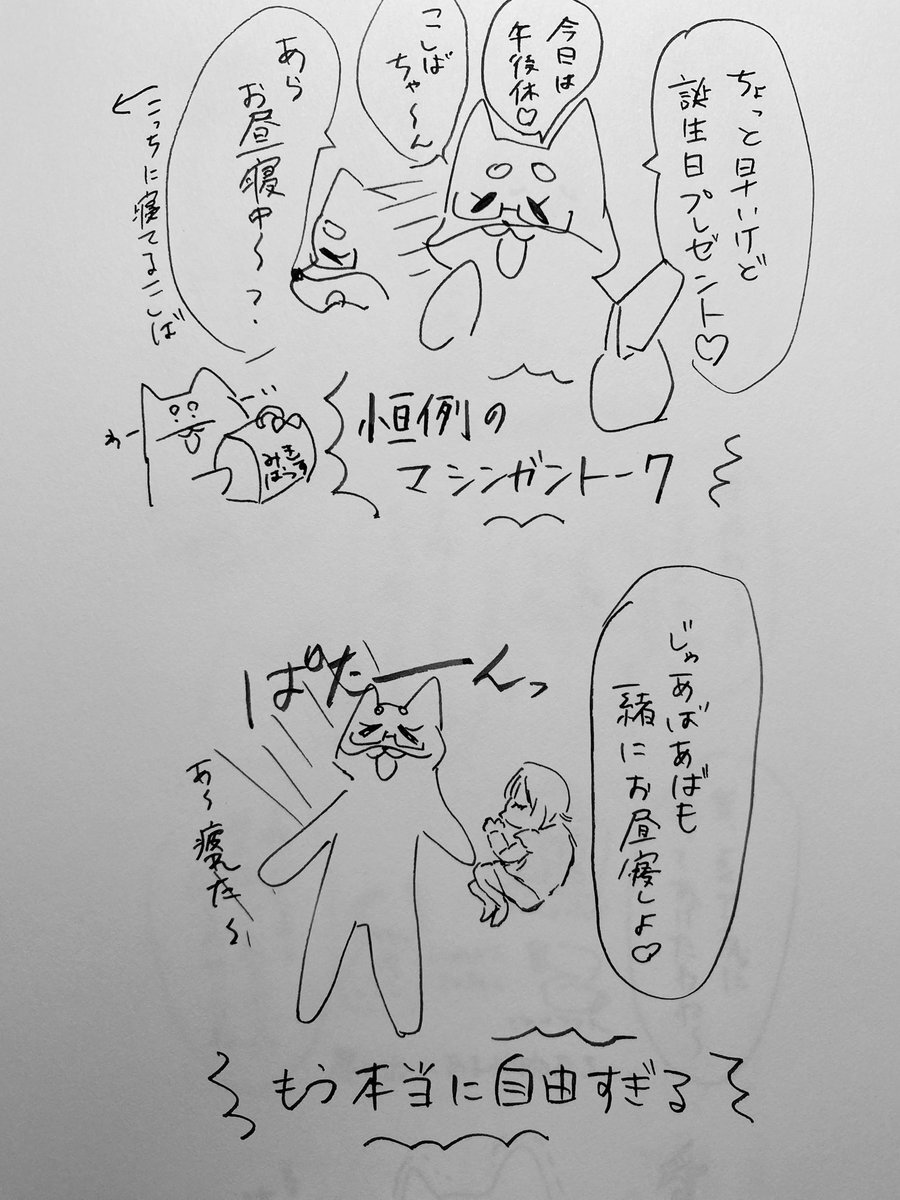 ちょっと早いけど
誕生日プレゼント♡
今日は
午後休♡
こしば
ちゃ～ん
あら
お昼寝中～？
←こっちに寝てるこしば
わー
みき
はうす
恒例の
マシンガントーク
じゃあばあばも
一緒にお昼寝しよ♡
ばたーんっ
あ～疲れた～
もう本当に自由すぎる